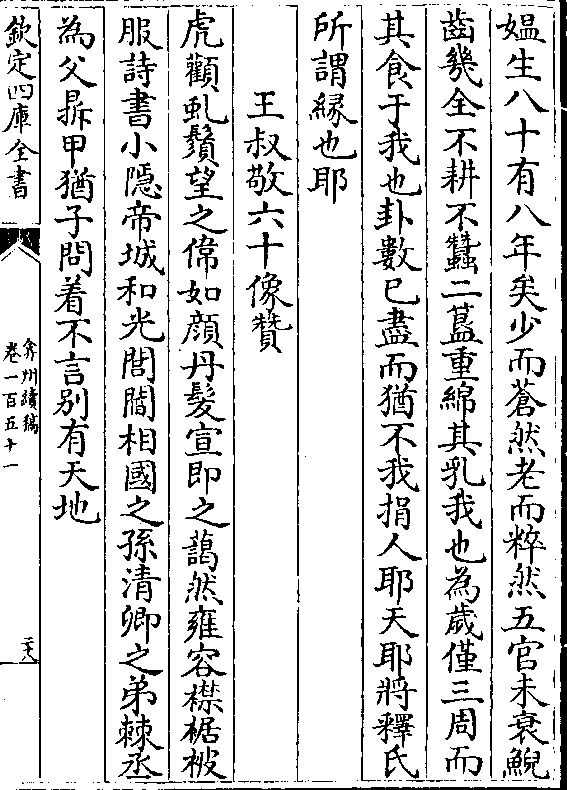 媪生八十有八年矣少而蒼然老而粹然五官未衰鯢
齒幾全不耕不蠶二葢重綿其乳我也為歲僅三周而
其食于我也卦數已盡而猶不我捐人耶天耶將釋氏
所謂緣也耶
王叔敬六十像贊
虎顴虬鬚望之偉如顔丹髮宣即之藹然雍容襟裾被
服詩書小隱帝城和光閭閻相國之孫清卿之弟棘丞
為父掁甲猶子問着不言别有天地
欽定四庫全書
弇州續稿
卷一百五十一
二十八